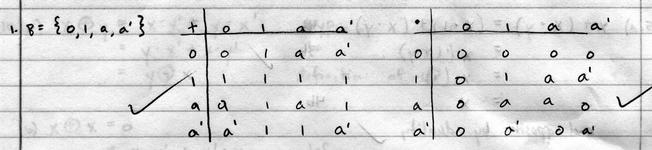 1. B = {0, 1, a, a'} + 0 1 a a' • 0 1 a a'
0 0 1 a a' 0 0 0 0 0
1 1 1 1 1 1 0 1 a a'
a a 1 a 1 a 0 a a 0
a' a' 1 1 a' a' 0 a' 0 a'